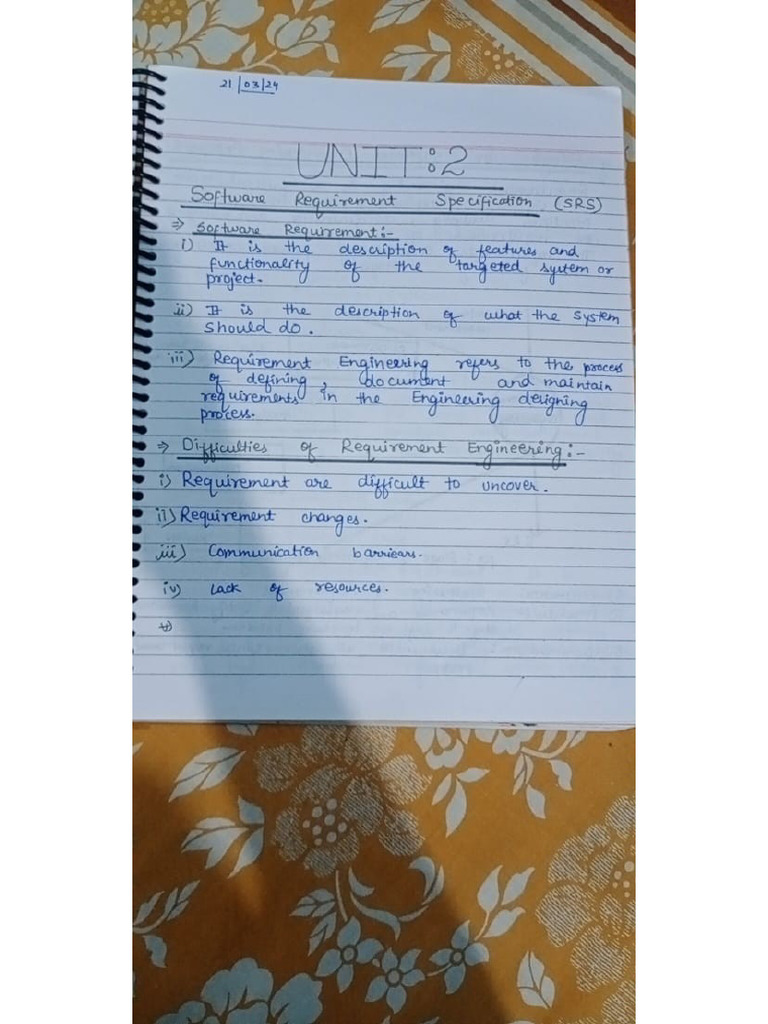 21/03/24
UNIT:2
Software Requirement Specification (SRS)
⇒ Software Requirement:-
i) It is the description of features and
functionality of the targeted system or
project.
ii) It is the description of what the system
should do.
iii) Requirement Engineering refers to the process
of defining, document and maintain
requirements in the Engineering designing
process.
⇒ Difficulties of Requirement Engineering:-
i) Requirement are difficult to uncover.
ii) Requirement changes.
iii) Communication barriears.
iv) Lack of resources.